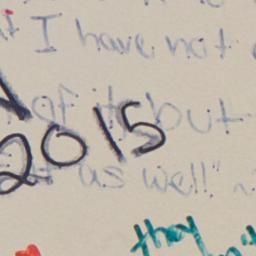 I have not
of it but
2015
as well" ~
they